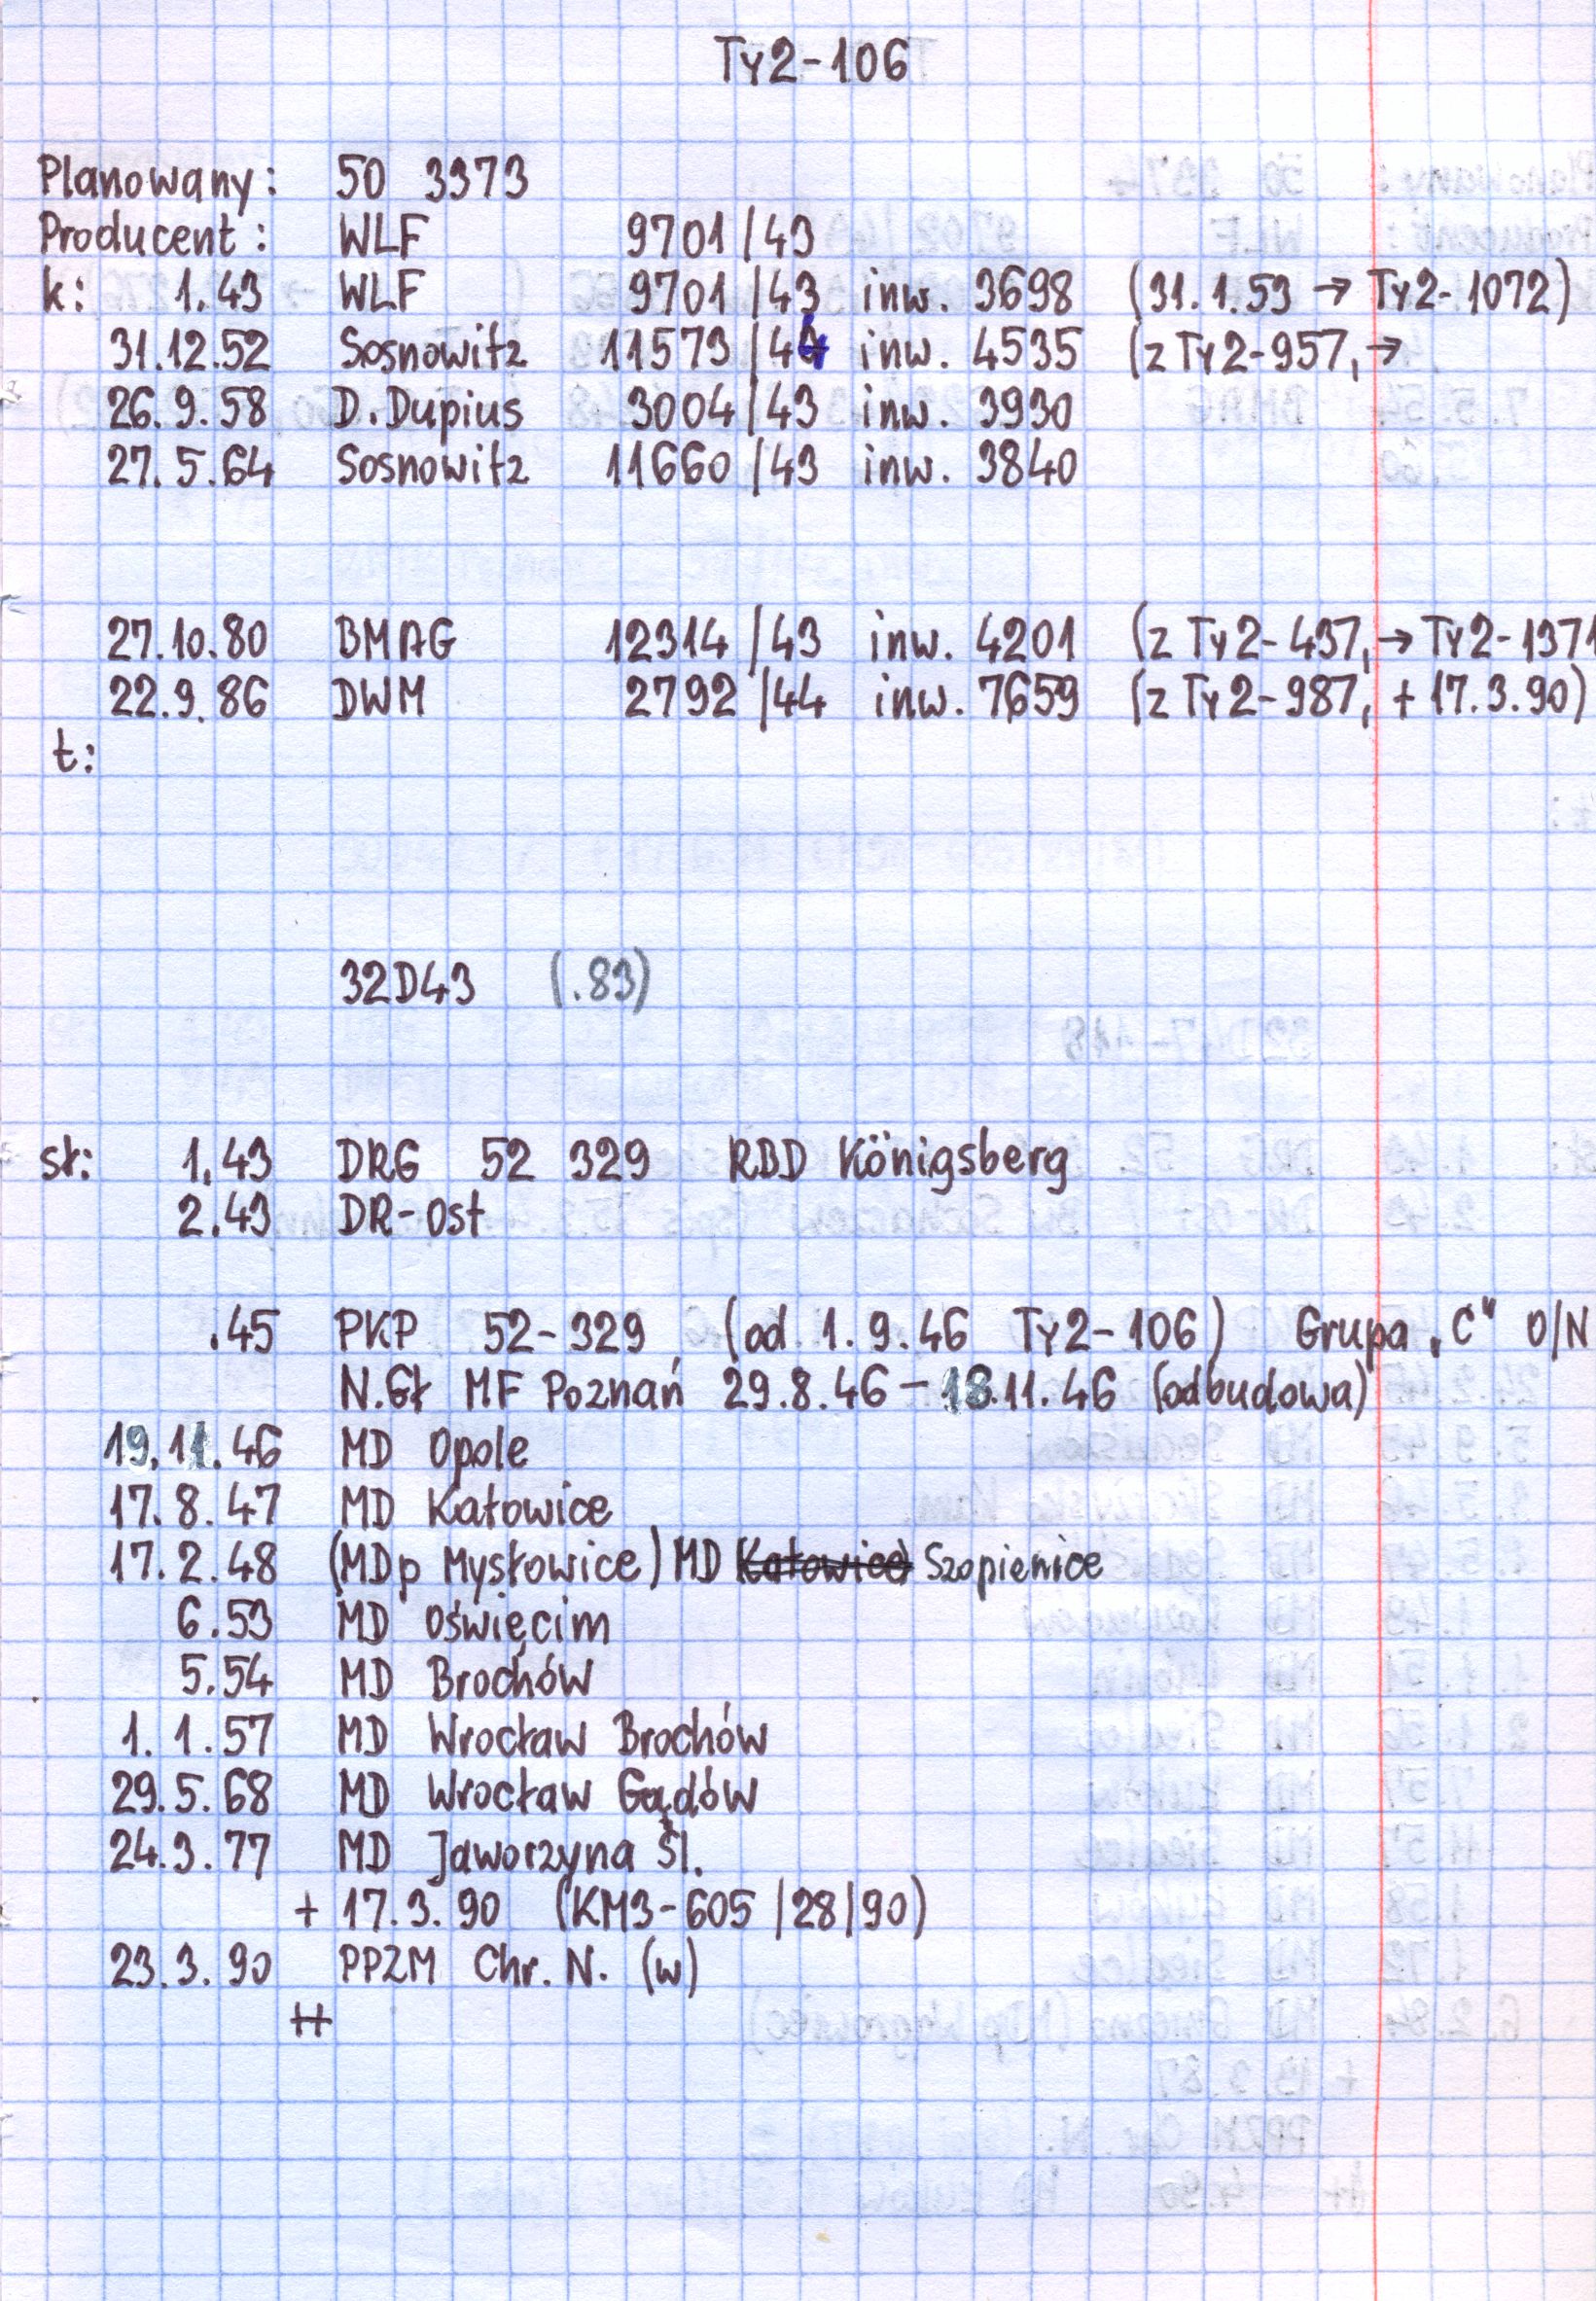 Ty2-106
Planowany: 50 3373
Producent: WLF 9701/43
k: 1.43 WLF 9701/43 inw. 3698 (31.1.53 → Ty2-1072)
31.12.52 Sosnowitz 11573/44 inw. 4535 (z Ty2-957, →
26.9.58 D.Dupius 3004/43 inw. 3930
27.5.64 Sosnowitz 11660/43 inw. 3840
27.10.80 BMAG 12314/43 inw. 4201 (z Ty2-437, → Ty2-1371
22.9.86 DWM 2792/44 inw. 7659 (z Ty2-987, + 17.3.90)
t:
32D43 (.83)
st: 1.43 DRG 52 329 RBD Königsberg
2.43 DR-Ost
.45 PKP 52-329 (od 1.9.46 Ty2-106) Grupa „C" O/N
N.Gł MF Poznań 29.8.46 - 18.11.46 (odbudowa)
19.11.46 MD Opole
17.8.47 MD Katowice
17.2.48 (MDp Mysłowice) MD Katowice) Szopienice
6.53 MD Oświęcim
5.54 MD Brochów
1.1.57 MD Wrocław Brochów
29.5.68 MD Wrocław Gądów
24.3.77 MD Jaworzyna Śl.
+ 17.3.90 (KM3-605/28/90)
23.3.90 PPZM Chr. N. (w)
++